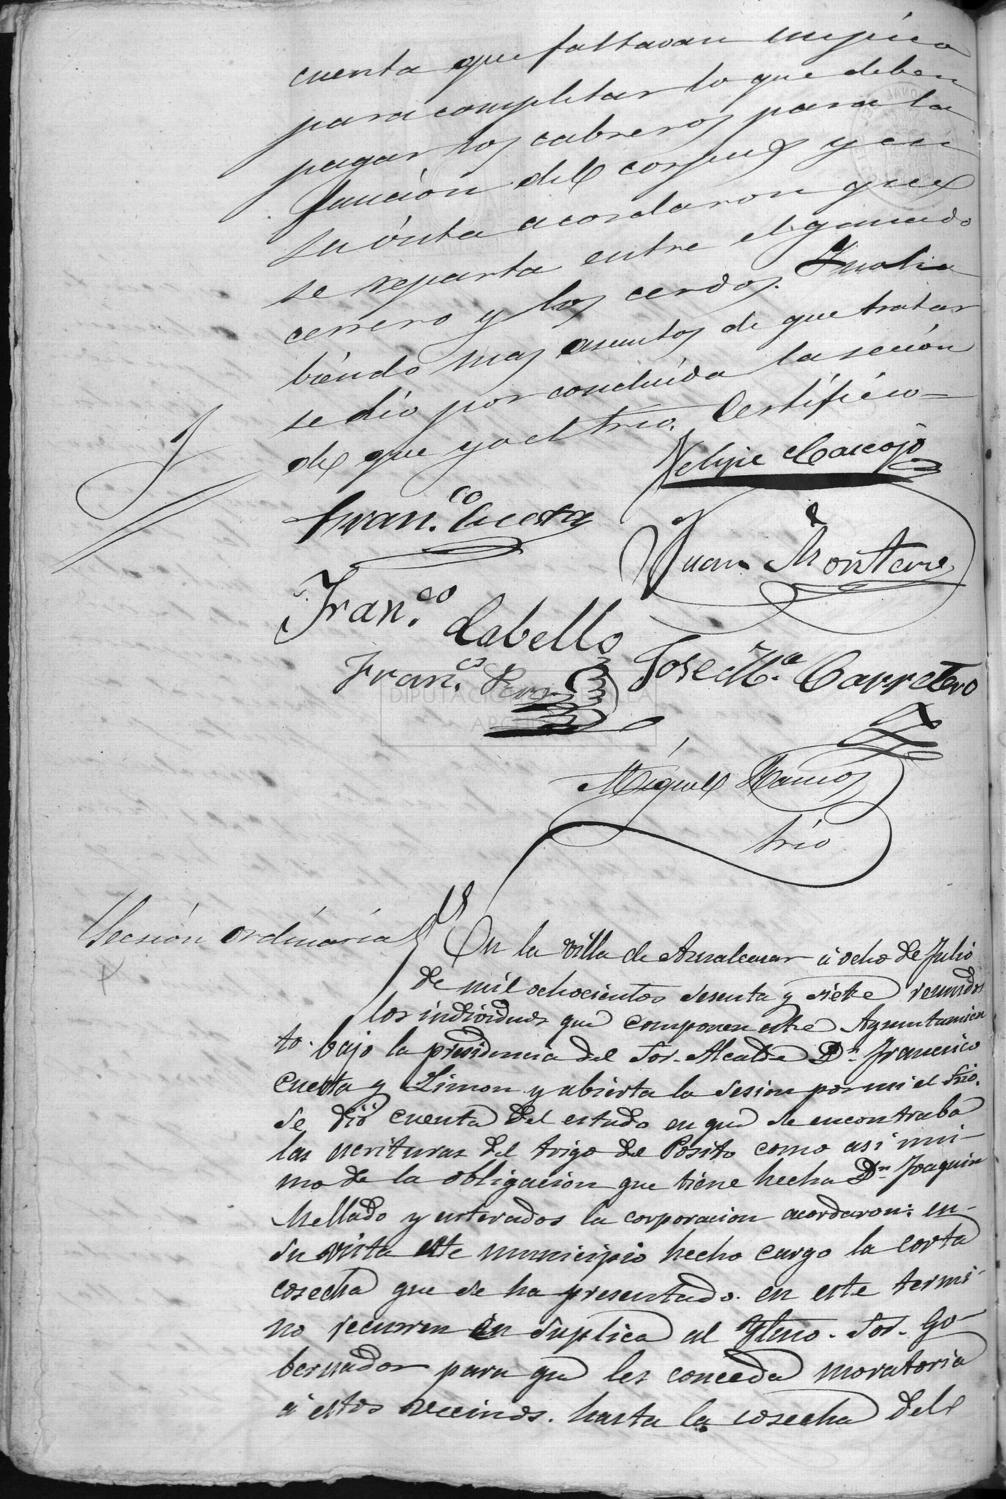 cuenta que faltavan un pico
para completar lo que deben
pagar los cabreros para la
funcion del corpus y en
su vista acordaron que
se reparta entre el ganado
cerrero y los cerdos. Y no ha
biendo mas asuntos de que tratar
se dio por concluida la secion
de que yo el Srio. Certifico =
Felipe
Fran.co Cuesta
Juan Montero
Fran.co Cabello
Jose M.a Carretero
Fran.co
Miguel Ramos
Srio
Secsion ordinaria
En la villa de Aznalcazar á ocho de Julio
de mil ochocientos sesenta y siete reunidos
los individuos que componen este Ayuntamien
to bajo la presidencia del Sor. Alcalde Dn. Francisco
Cuesta y Limon y abierta la sesion por mi el Srio.
se dio cuenta del estado en que se encontraba
las escrituras del trigo del Posito como asi mi-
mo de la obligacion que tiene hecha Dn. Joaquin
Mellado y enterados la corporacion acordaron: en-
su vista este municipio hecho cargo la corta
cosecha que se ha presentado en este termi-
no recurren en suplica al Yltmo. Sor. Go-
bernador para que les conceda moratoria
á estos vecinos. hasta la cosecha del